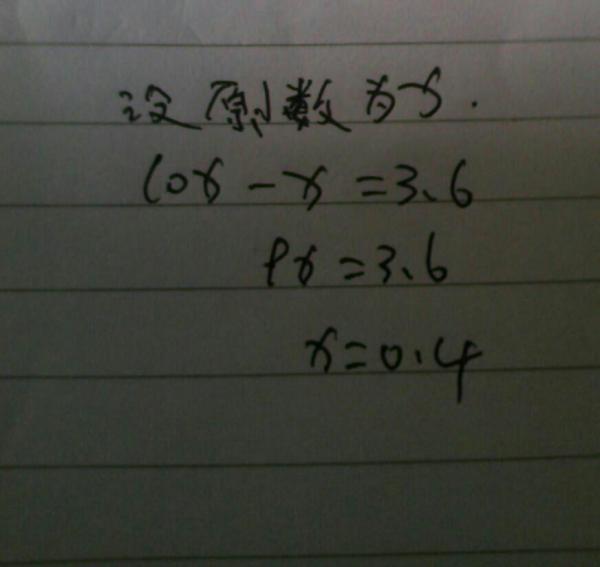 设原数为x.
10x-x=3.6
9x=3.6
x=0.4